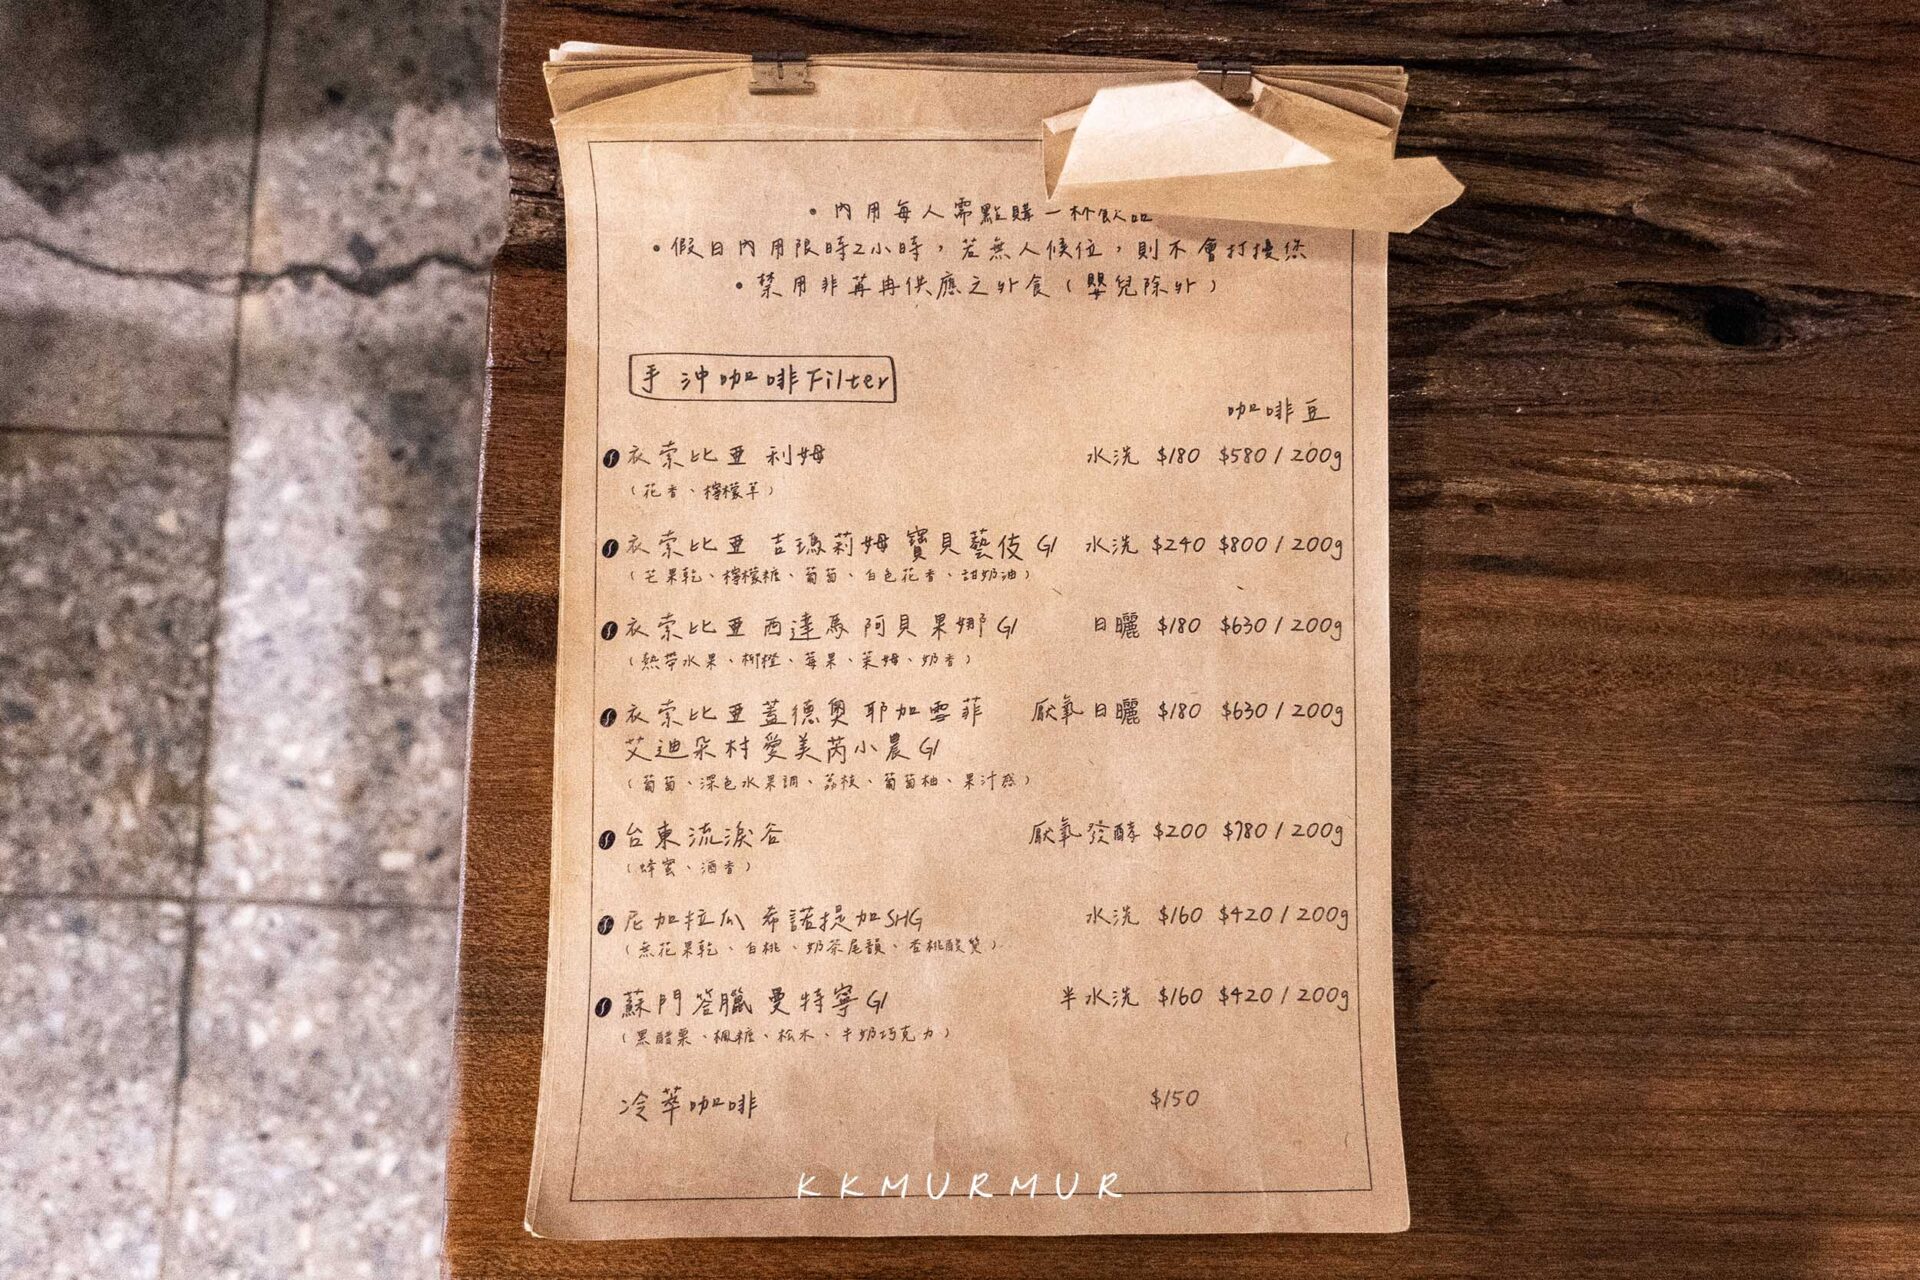 • 內用每人需點購一杯飲品
• 假日內用限時2小時，若無人候位，則不會打擾您
• 禁用非苒冉供應之外食（嬰兒除外）
手沖咖啡Filter
咖啡豆
衣索比亞 利姆 水洗 $180 $580/200g
（花香、檸檬草）
衣索比亞 吉瑪莉姆 寶貝藝伎 G1 水洗 $240 $800/200g
（芒果乾、檸檬糖、葡萄、白色花香、甜奶油）
衣索比亞 西達馬 阿貝果娜 G1 日曬 $180 $630/200g
（熱帶水果、柳橙、莓果、萊姆、奶香）
衣索比亞 蓋德奧 耶加雪菲 厭氧日曬 $180 $630/200g
艾迪朵村 愛美芮小農 G1
（葡萄、深色水果調、荔枝、葡萄柚、果汁感）
台東流淚谷 厭氧發酵 $200 $780/200g
（蜂蜜、酒香）
尼加拉瓜 希諾提加 SHG 水洗 $160 $420/200g
（無花果乾、白桃、奶茶尾韻、杏桃酸質）
蘇門答臘 曼特寧 G1 半水洗 $160 $420/200g
（黑醋栗、楓糖、松木、牛奶巧克力）
冷萃咖啡 $150
KKMURMUR